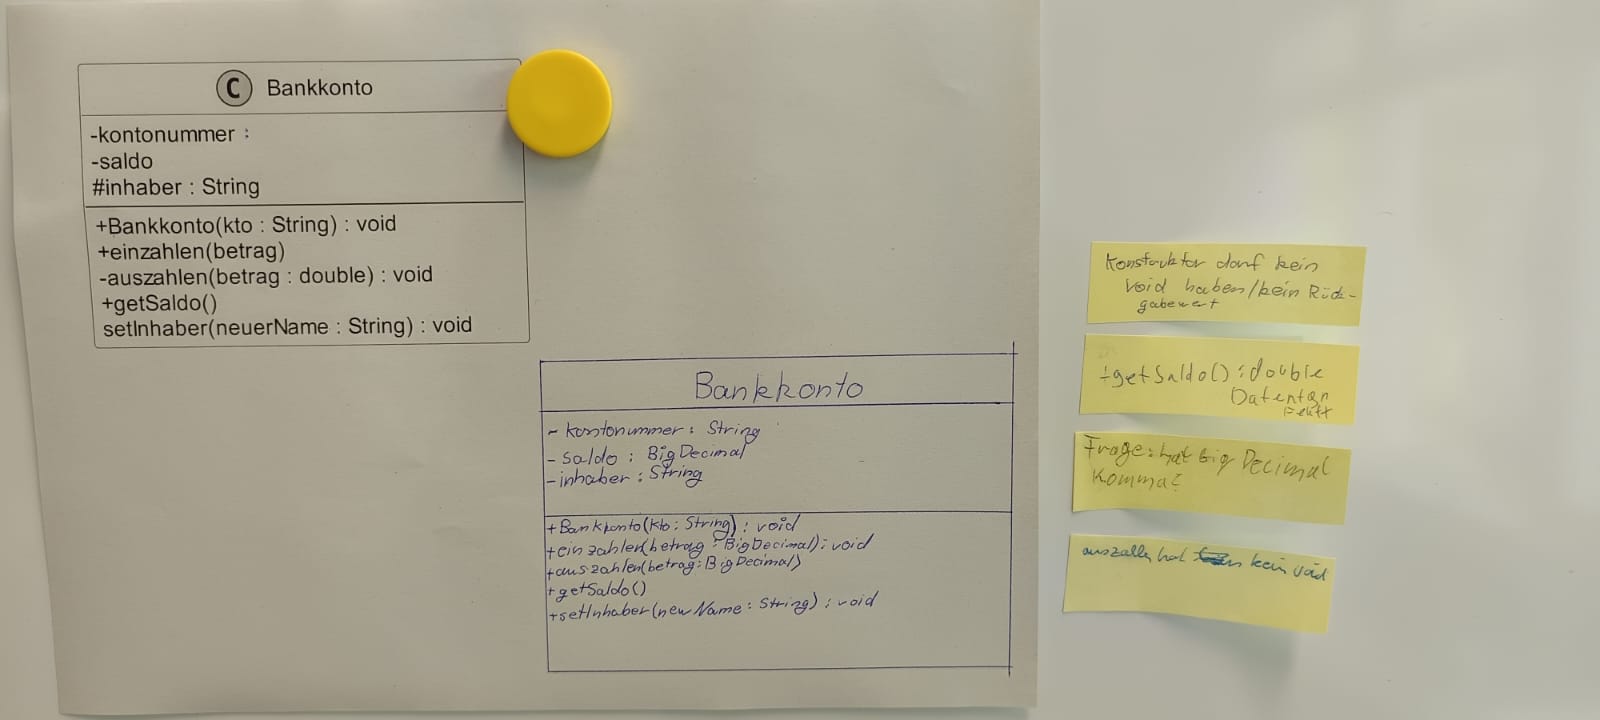 C Bankkonto
-kontonummer :
-saldo
#inhaber : String
+Bankkonto(kto : String) : void
+einzahlen(betrag)
-auszahlen(betrag : double) : void
+getSaldo()
setInhaber(neuerName : String) : void
Bankkonto
- kontonummer : String
- Saldo : BigDecimal
- inhaber : String
+Bankkonto(kto : String) : void
+einzahlen(betrag : BigDecimal) : void
+auszahlen(betrag : BigDecimal)
+getSaldo()
+setInhaber(newName : String) : void
Konstruktor darf kein
void haben/kein Rück-
gabewert
+getSaldo() : double
Datentyp
fehlt
Frage: hat Big Decimal
Komma?
hat kein void